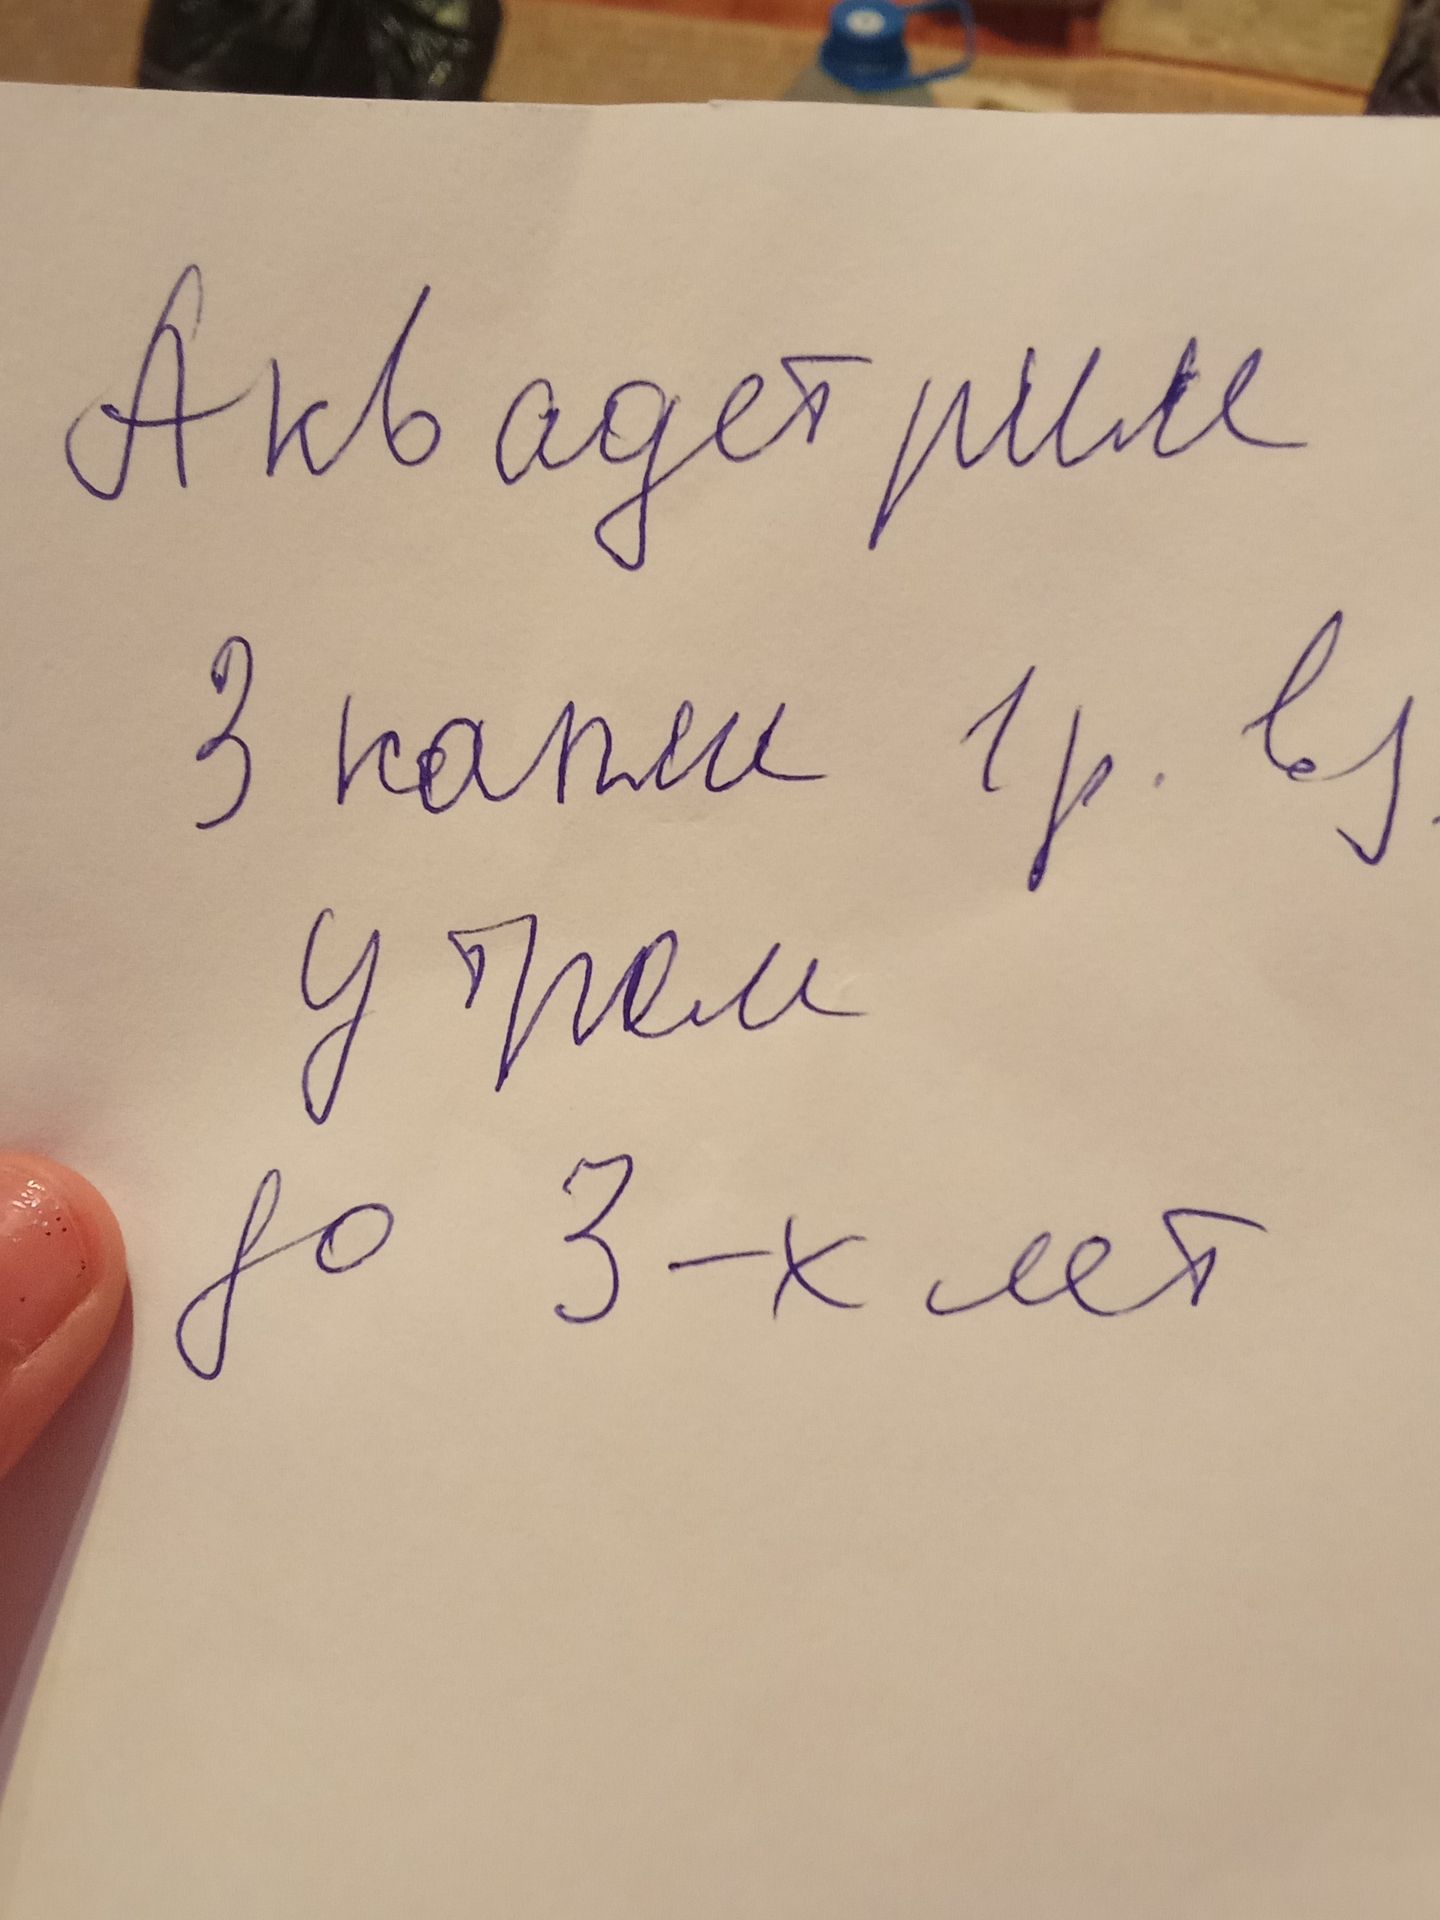 Аквадетрим
3 капли 1 р. в д.
утром
до 3-х лет